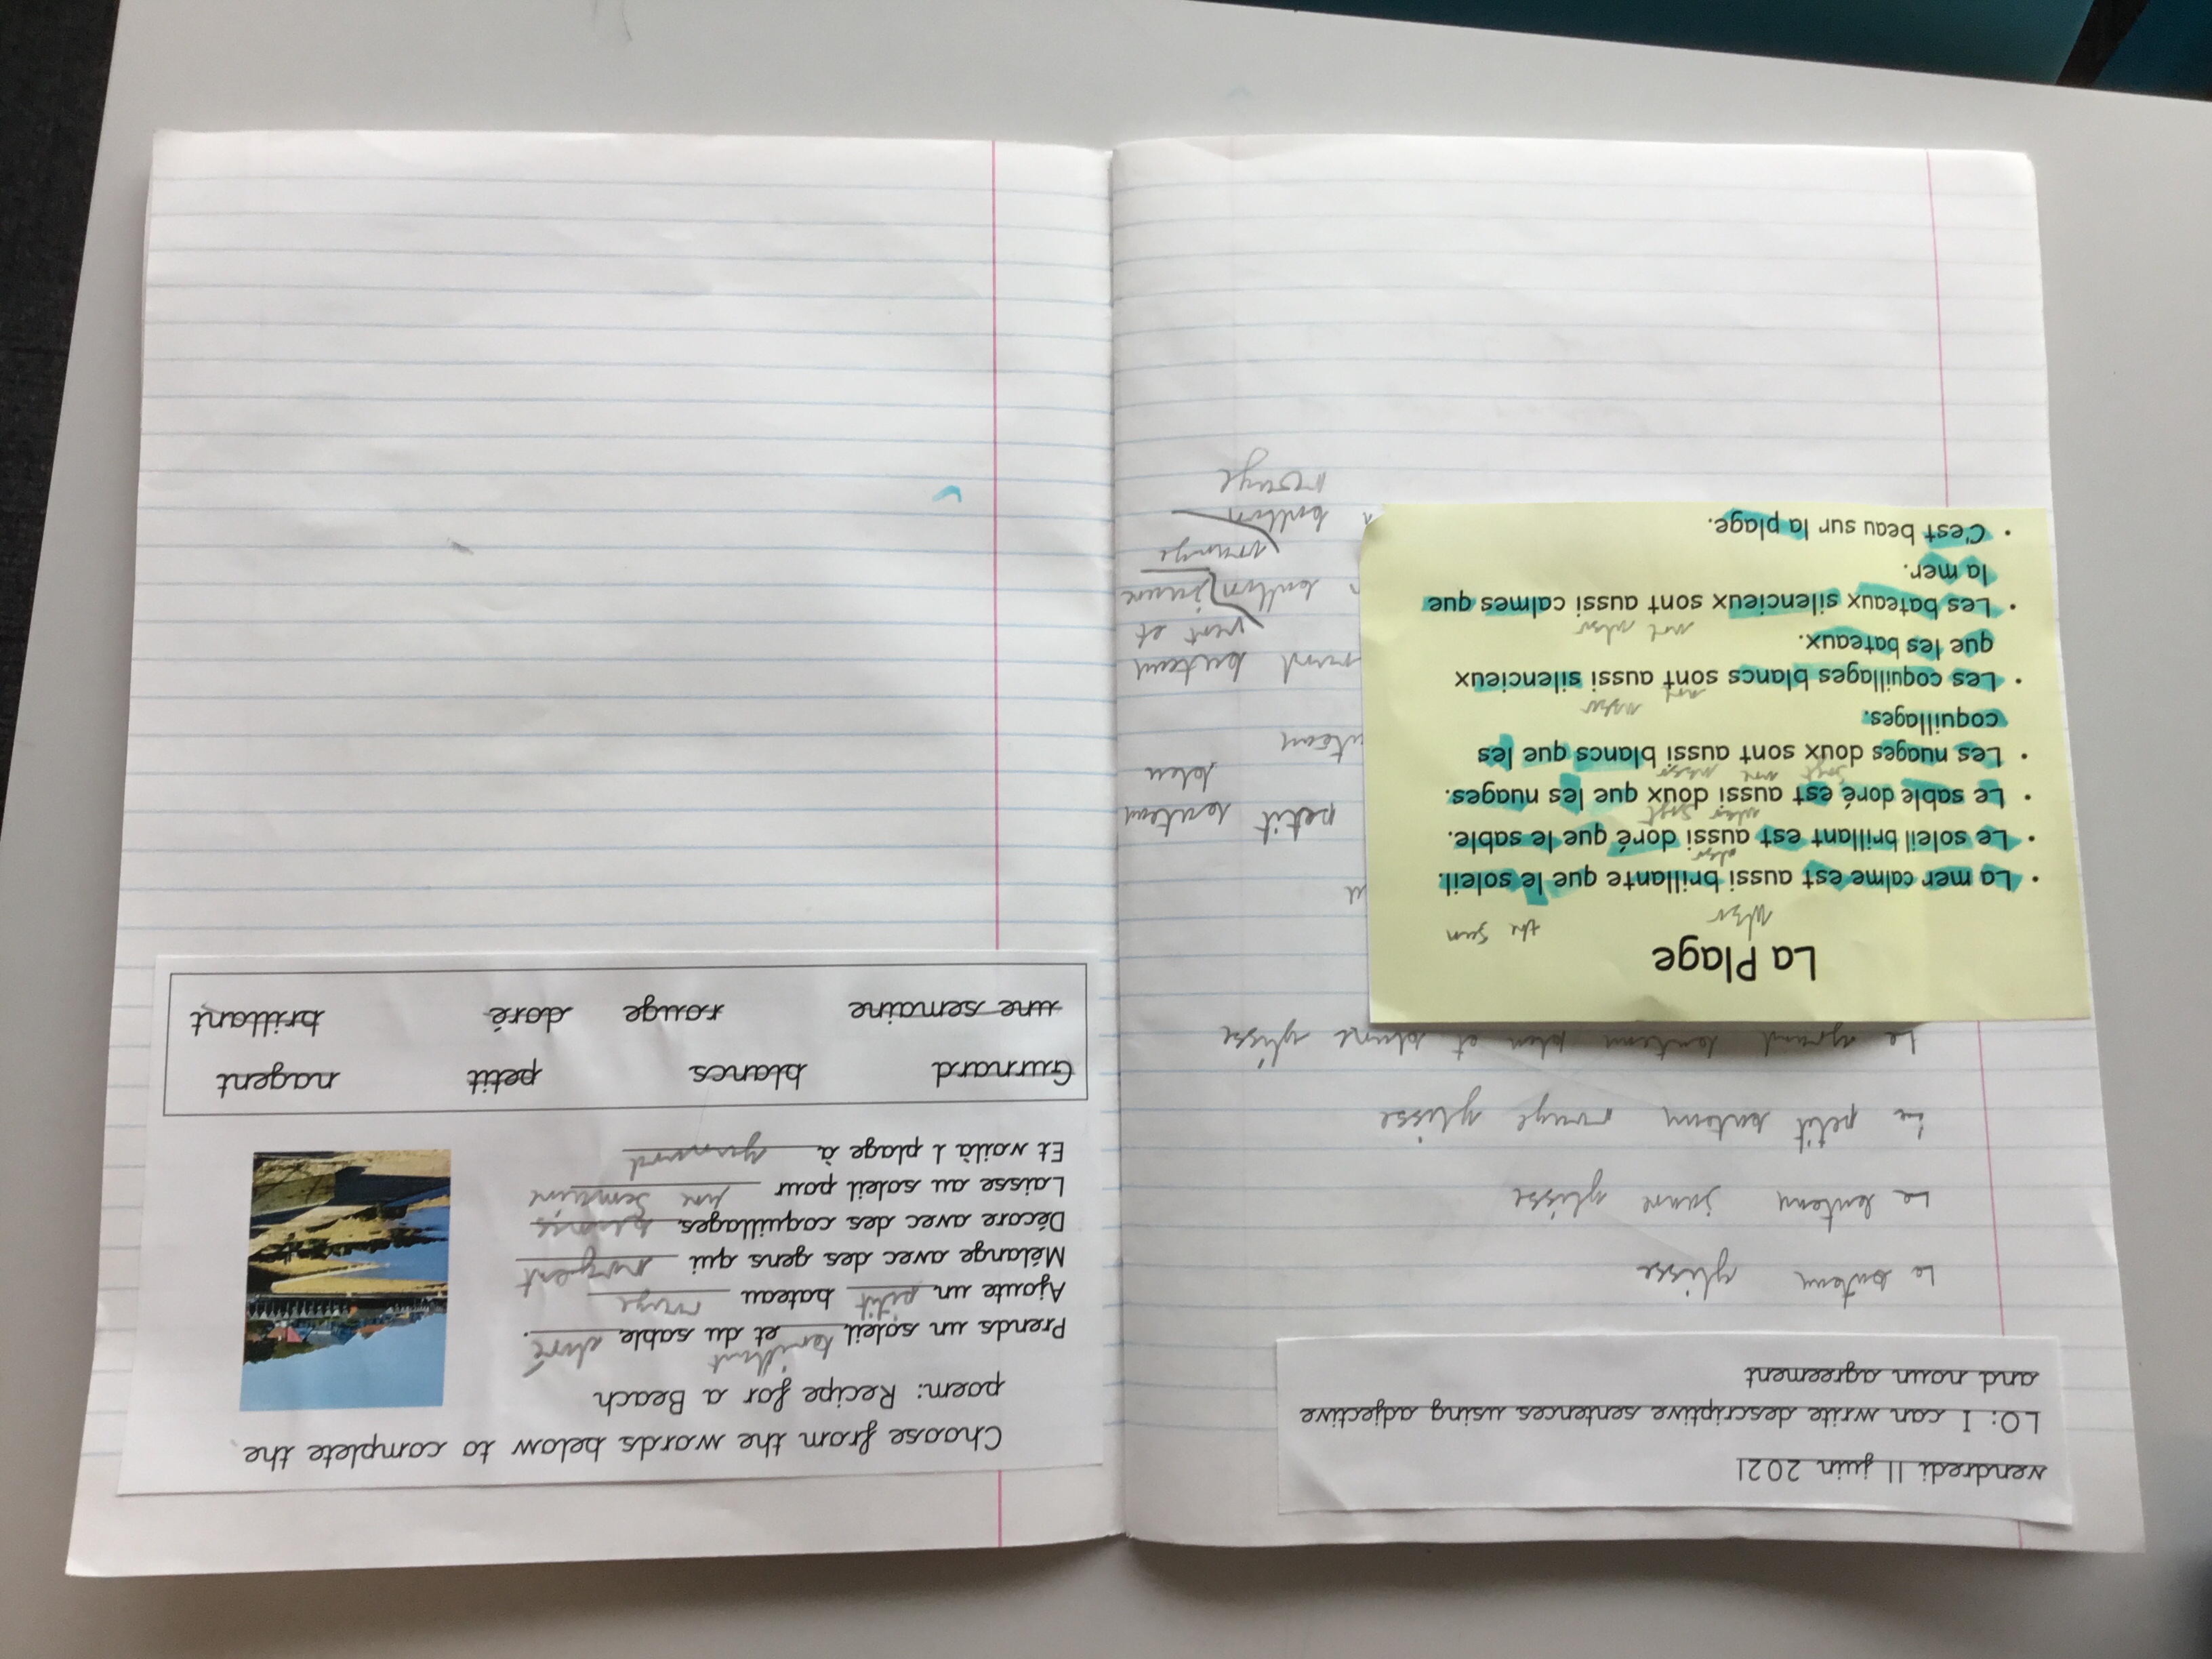 vendredi 11 juin 2021
LO: I can write descriptive sentences using adjective
and noun agreement
Le bateau glisse
Le bateau jaune glisse
Le petit bateau rouge glisse
Le grand bateau bleu et blanc glisse
La Plage
the sun
• La mer calme est aussi brillante que le soleil.
• Le soleil brillant est aussi doré que le sable.
soft
• Le sable doré est aussi doux que les nuages.
soft
• Les nuages doux sont aussi blancs que les
coquillages.
• Les coquillages blancs sont aussi silencieux
que les bateaux.
• Les bateaux silencieux sont aussi calmes que
la mer.
• C'est beau sur la plage.
petit bateau
bleu
bateau
vert et
jaune
orange
rouge
Choose from the words below to complete the
poem: Recipe for a Beach
Prends un soleil brillant et du sable doré.
Ajoute un petit bateau rouge
Mélange avec des gens qui nagent
Décore avec des coquillages blancs
Laisse au soleil pour une semaine
Et voilà 1 plage à gurnard
Gurnard blancs petit nagent
une semaine rouge doré brillant